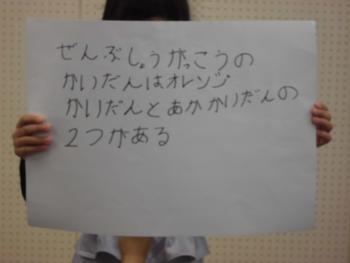 ぜんぶしょうがっこうの
かいだんはオレンジ
かいだんとあかかいだんの
2つがある